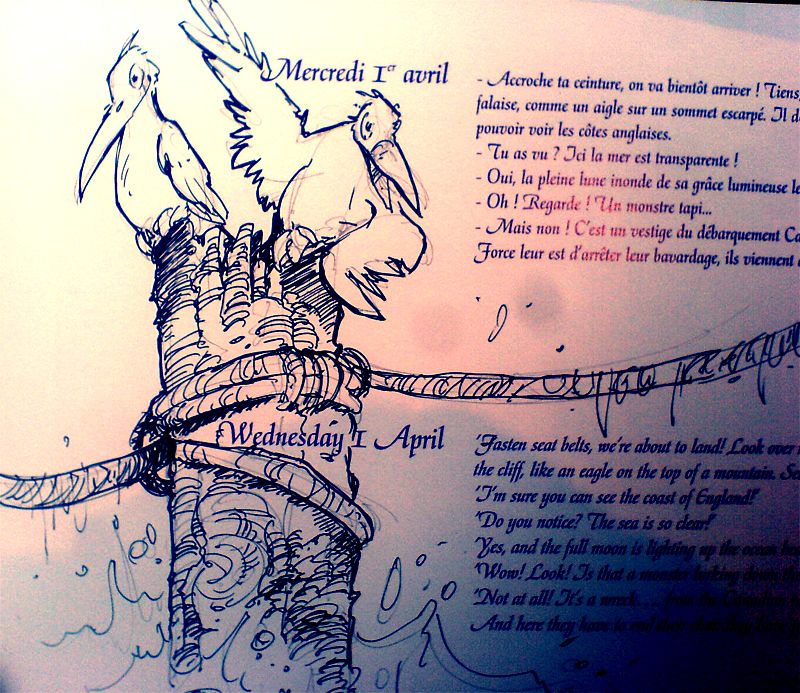 Mercredi 1er avril
- Accroche ta ceinture, on va bientôt arriver ! Tiens,
falaise, comme un aigle sur un sommet escarpé. Il
pouvoir voir les côtes anglaises.
- Tu as vu ? Ici la mer est transparente !
- Oui, la pleine lune inonde de sa grâce lumineuse
- Oh ! Regarde ! Un monstre tapi...
- Mais non ! C'est un vestige du débarquement
Force leur est d'arrêter leur bavardage, ils viennent
Wednesday 1 April
'Fasten seat belts, we're about to land! Look over
the cliff, like an eagle on the top of a mountain.
'I'm sure you can see the coast of England!'
'Do you notice? The sea is so clear!'
'Yes, and the full moon is lighting up the ocean
'Wow! Look! Is that a monster lurking down
'Not at all! It's a wreck . . . from the
And here they have to end their chat, they